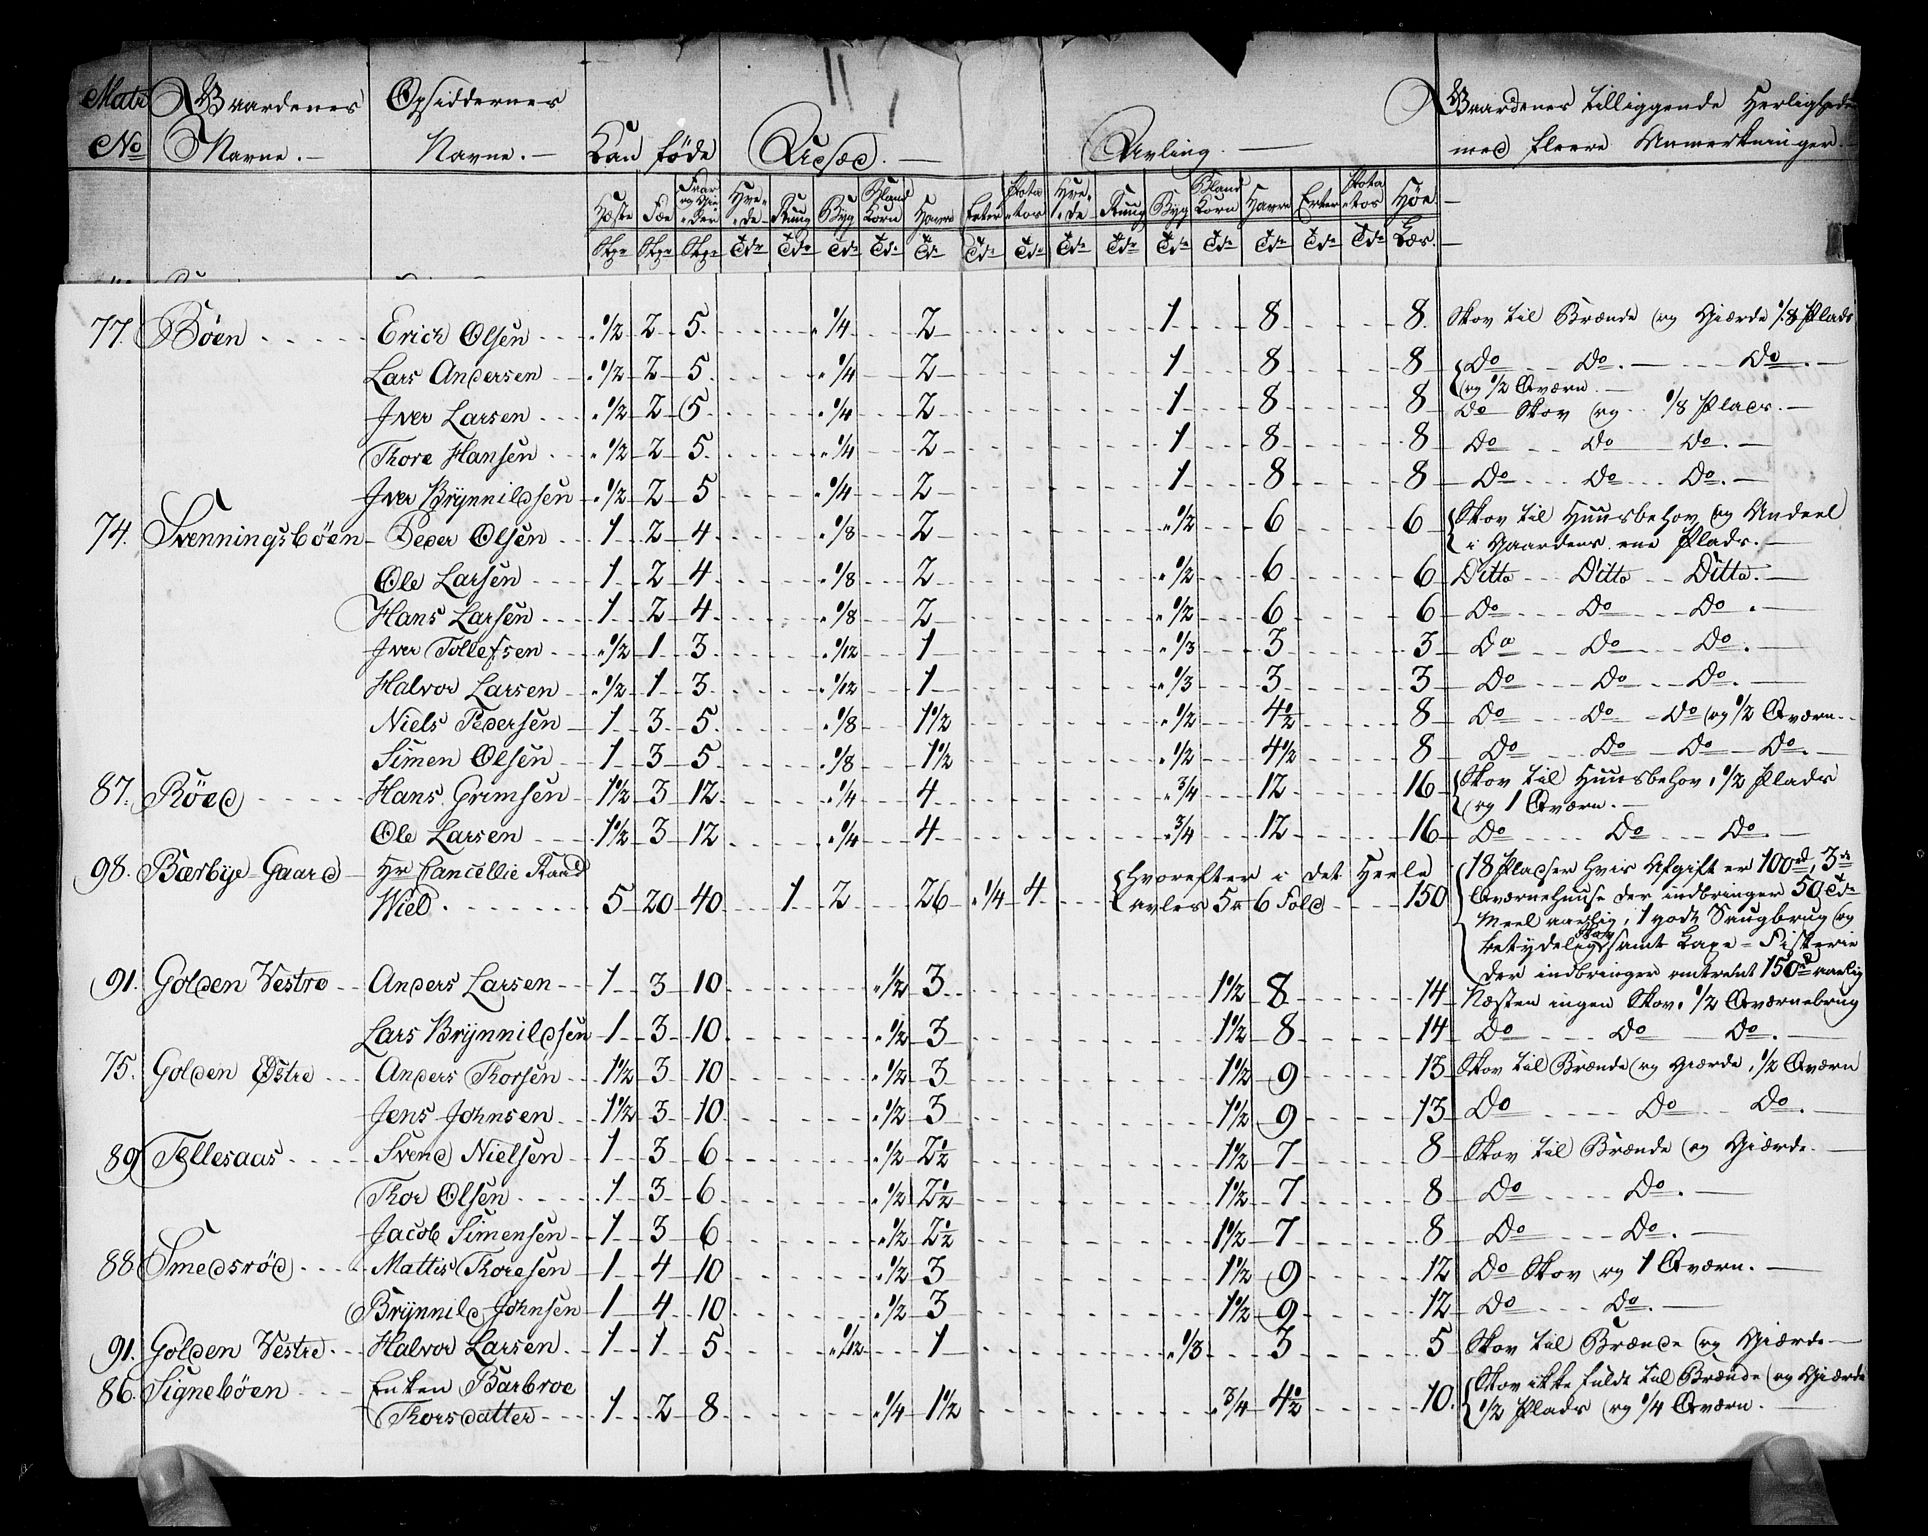 11
Matr Gaardenes Opsiddernes Gaardenes tilliggende Herligheder
No Navne. Navne. Kan føde Udsæd. Avling med fleere Anmerkninger.
Heste Fæe Hvede Rug Byg Bland Korn Havre Erter Potatos Hvede Rug Byg Bland Korn Havre Erter Potatos Høe
Tde Tde Tde Tde Td Tde Tde Tde Tde Tde Tde Tde Tde Tde Læs
77. Böen Erich Olsen 1/2 2 5 1/4 2 1 8 8 Skov til Brænde og Gierde 1/8 Plads
Lars Andersen 1/2 2 5 1/4 2 1 8 8 Do Do Do
og 1/2 Qværn
Iver Larsen 1/2 2 5 1/4 2 1 8 8 Do Skov og 1/8 Plads
Thore Hansen 1/2 2 5 1/4 2 1 8 8 Do Do Do
Iver Brÿnnildsen 1/2 2 5 1/4 2 1 8 8 Do Do Do
74. Svenningsböen Peder Olsen 1 2 4 1/8 2 1/2 6 6 Skov til Huusbehov og Andeel
i Gaardens ene Plads.
Ole Larsen 1 2 4 1/8 2 1/2 6 6 Ditto Ditto Ditto.
Hans Larsen 1 2 4 1/8 2 1/2 6 6 Do Do Do
Iver Tollefsen 1/2 1 3 1/12 1 1/3 3 3 Do Do Do
Halvor Larsen 1/2 1 3 1/12 1 1/3 3 3 Do Do Do
Niels Pedersen 1 3 5 1/8 1 1/2 1/2 4 1/2 8 Do Do Do og 1/2 Qværn
Simen Olsen 1 3 5 1/8 1 1/2 1/2 4 1/2 8 Do Do Do Do
87. Röed Hans Grimsen 1 1/2 3 12 1/4 4 3/4 12 16 Skov til Huusbehov, 1/2 Plads
og 1 Qværn.
Ole Larsen 1 1/2 3 12 1/4 4 3/4 12 16 Do Do Do
98. Bærbye Gaard Hr Cancellie Raad Hvorefter i det Heele 18 Pladser hvis Afgift er 100 rd, 3 de
Wiel 5 20 40 1 2 26 1/4 4 avles 5 a 6 Fold 150 Qværnehuuse der indbringer 50 Tde
Meel aarlig, 1 godt Saugbrug og
betydelig Skov samt Laxe-Fiskerie
der indbringer omtrent 150 rd aarlig
91. Golden Vestre Anders Larsen 1 3 10 1/2 3 1 1/2 8 14 Næsten ingen Skov, 1/2 Qværnebrug
Lars Brÿnnildsen 1 3 10 1/2 3 1 1/2 8 14 Do Do Do
75. Golden Østre Anders Thorsen 1 1/2 3 10 1/2 3 1 1/2 9 13 Skov til Brænde og Gierde, 1/2 Qværn
Jens Johnsen 1 1/2 3 10 1/2 3 1 1/2 9 13 Do Do Do
89 Tellesaas Svend Nielsen 1 3 6 1/2 2 1/2 1 1/2 7 8 Skov til Brænde og Gierde.
Thor Olsen 1 3 6 1/2 2 1/2 1 1/2 7 8 Do Do
Jacob Simensen 1 3 6 1/2 2 1/2 1 1/2 7 8 Do Do
88 Smedsröd Mattis Thoresen 1 4 10 1/2 3 1 1/2 9 12 Do Skov og 1 Qværn.
Brÿnnild Johnsen 1 4 10 1/2 3 1 1/2 9 12 Do Do
91. Golden Vestre Halvor Larsen 1 1 5 1/12 1 1/3 3 5 Skov til Brænde og Gierde
86. Signeböen Enken Barbroe Skov ikke fuldt til Brænde og Gierde
Thorsdatter 1 2 8 1/4 1 1/2 3/4 4 1/2 10. 1/2 Plads og 1/4 Qværn.